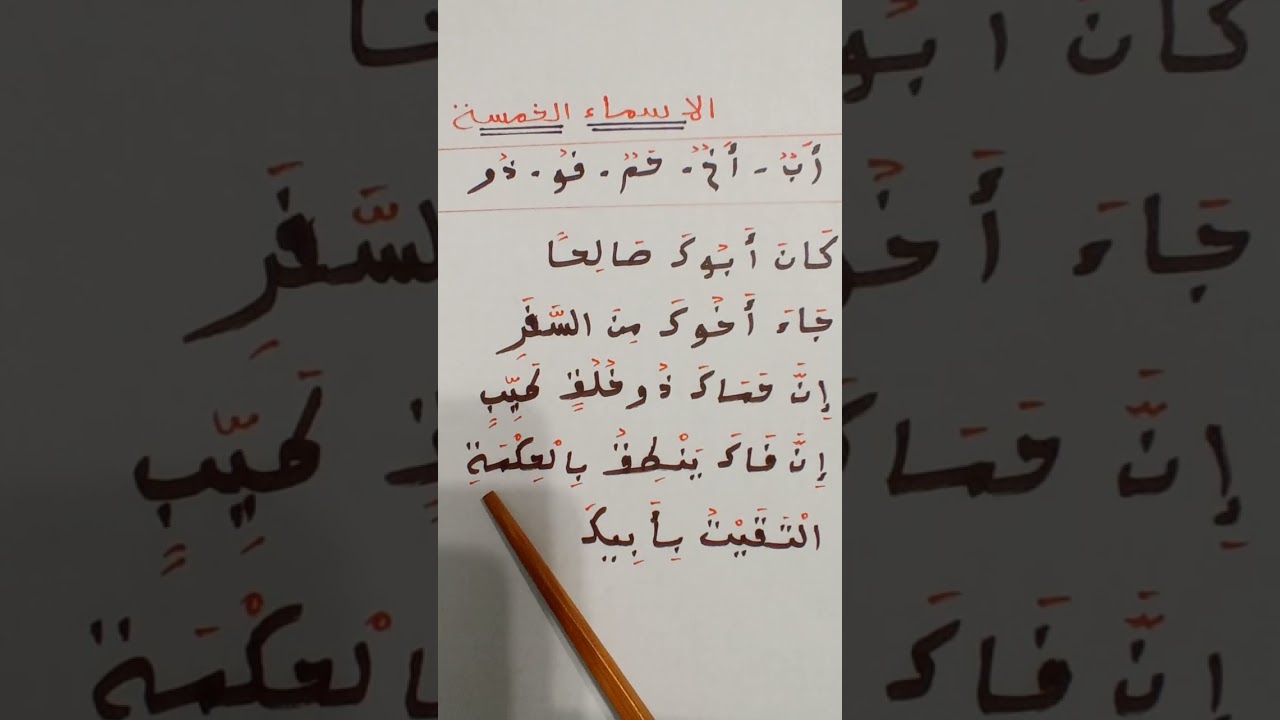 الاسماء الخمسة
أَبٌ - أَخٌ - حَمٌ - فُو - ذُو
كَانَ أَبُوكَ صَالِحًا
جَاءَ أَخُوكَ مِنَ السَّفَرِ
إِنَّ حَمَاكَ ذُو خُلُقٍ طَيِّبٍ
إِنَّ فَاكَ يَنْطِقُ بِالْحِكْمَةِ
الْتَقَيْتُ بِأَبِيكَ